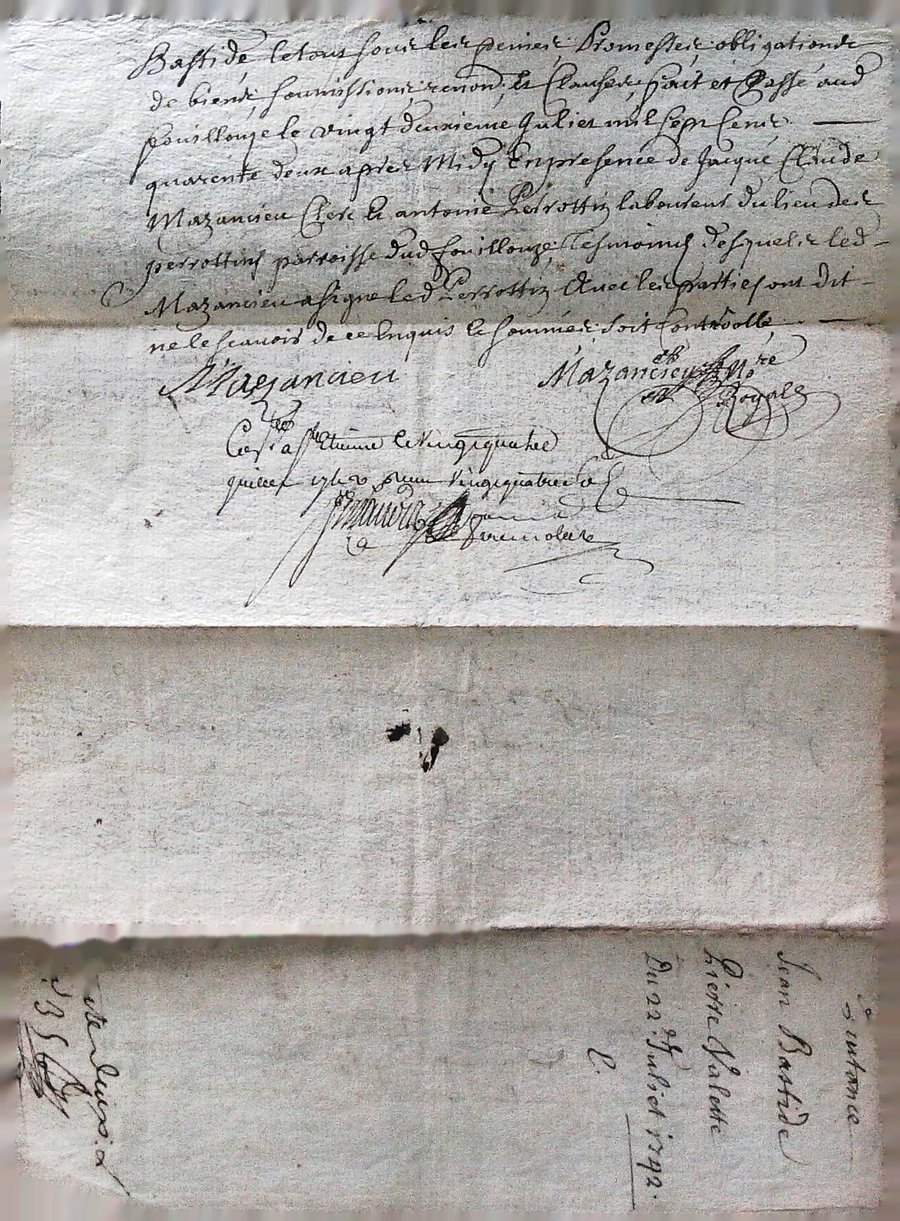 Bastide, le tout sous les peines, Promesses, obligations
de biens, soumissions, renon, et Clauses, fait et Passé aud
fouillouze le vingt deuxieme Juliet mil sept cens
quarente deux apres Midy En presence de Jacque Claude
Mazancieu Clerc et antoine Perrottin laboureur du lieu des
perrottins parroisse dud fouillouze, Tesmoins desquels led
Mazancieu a signé led Perrottin Avec les parties ont dit
ne le scavoir de ce Enquis et sommés, soit Controollé
Mazancieu
Mazancieu Nore
Royal
a St Etienne le vingt quatre
juillet 1742 vingt quatre sols
Quitance
Jean Bastide
Pierre Valette
Du 22e Juliet 1742.